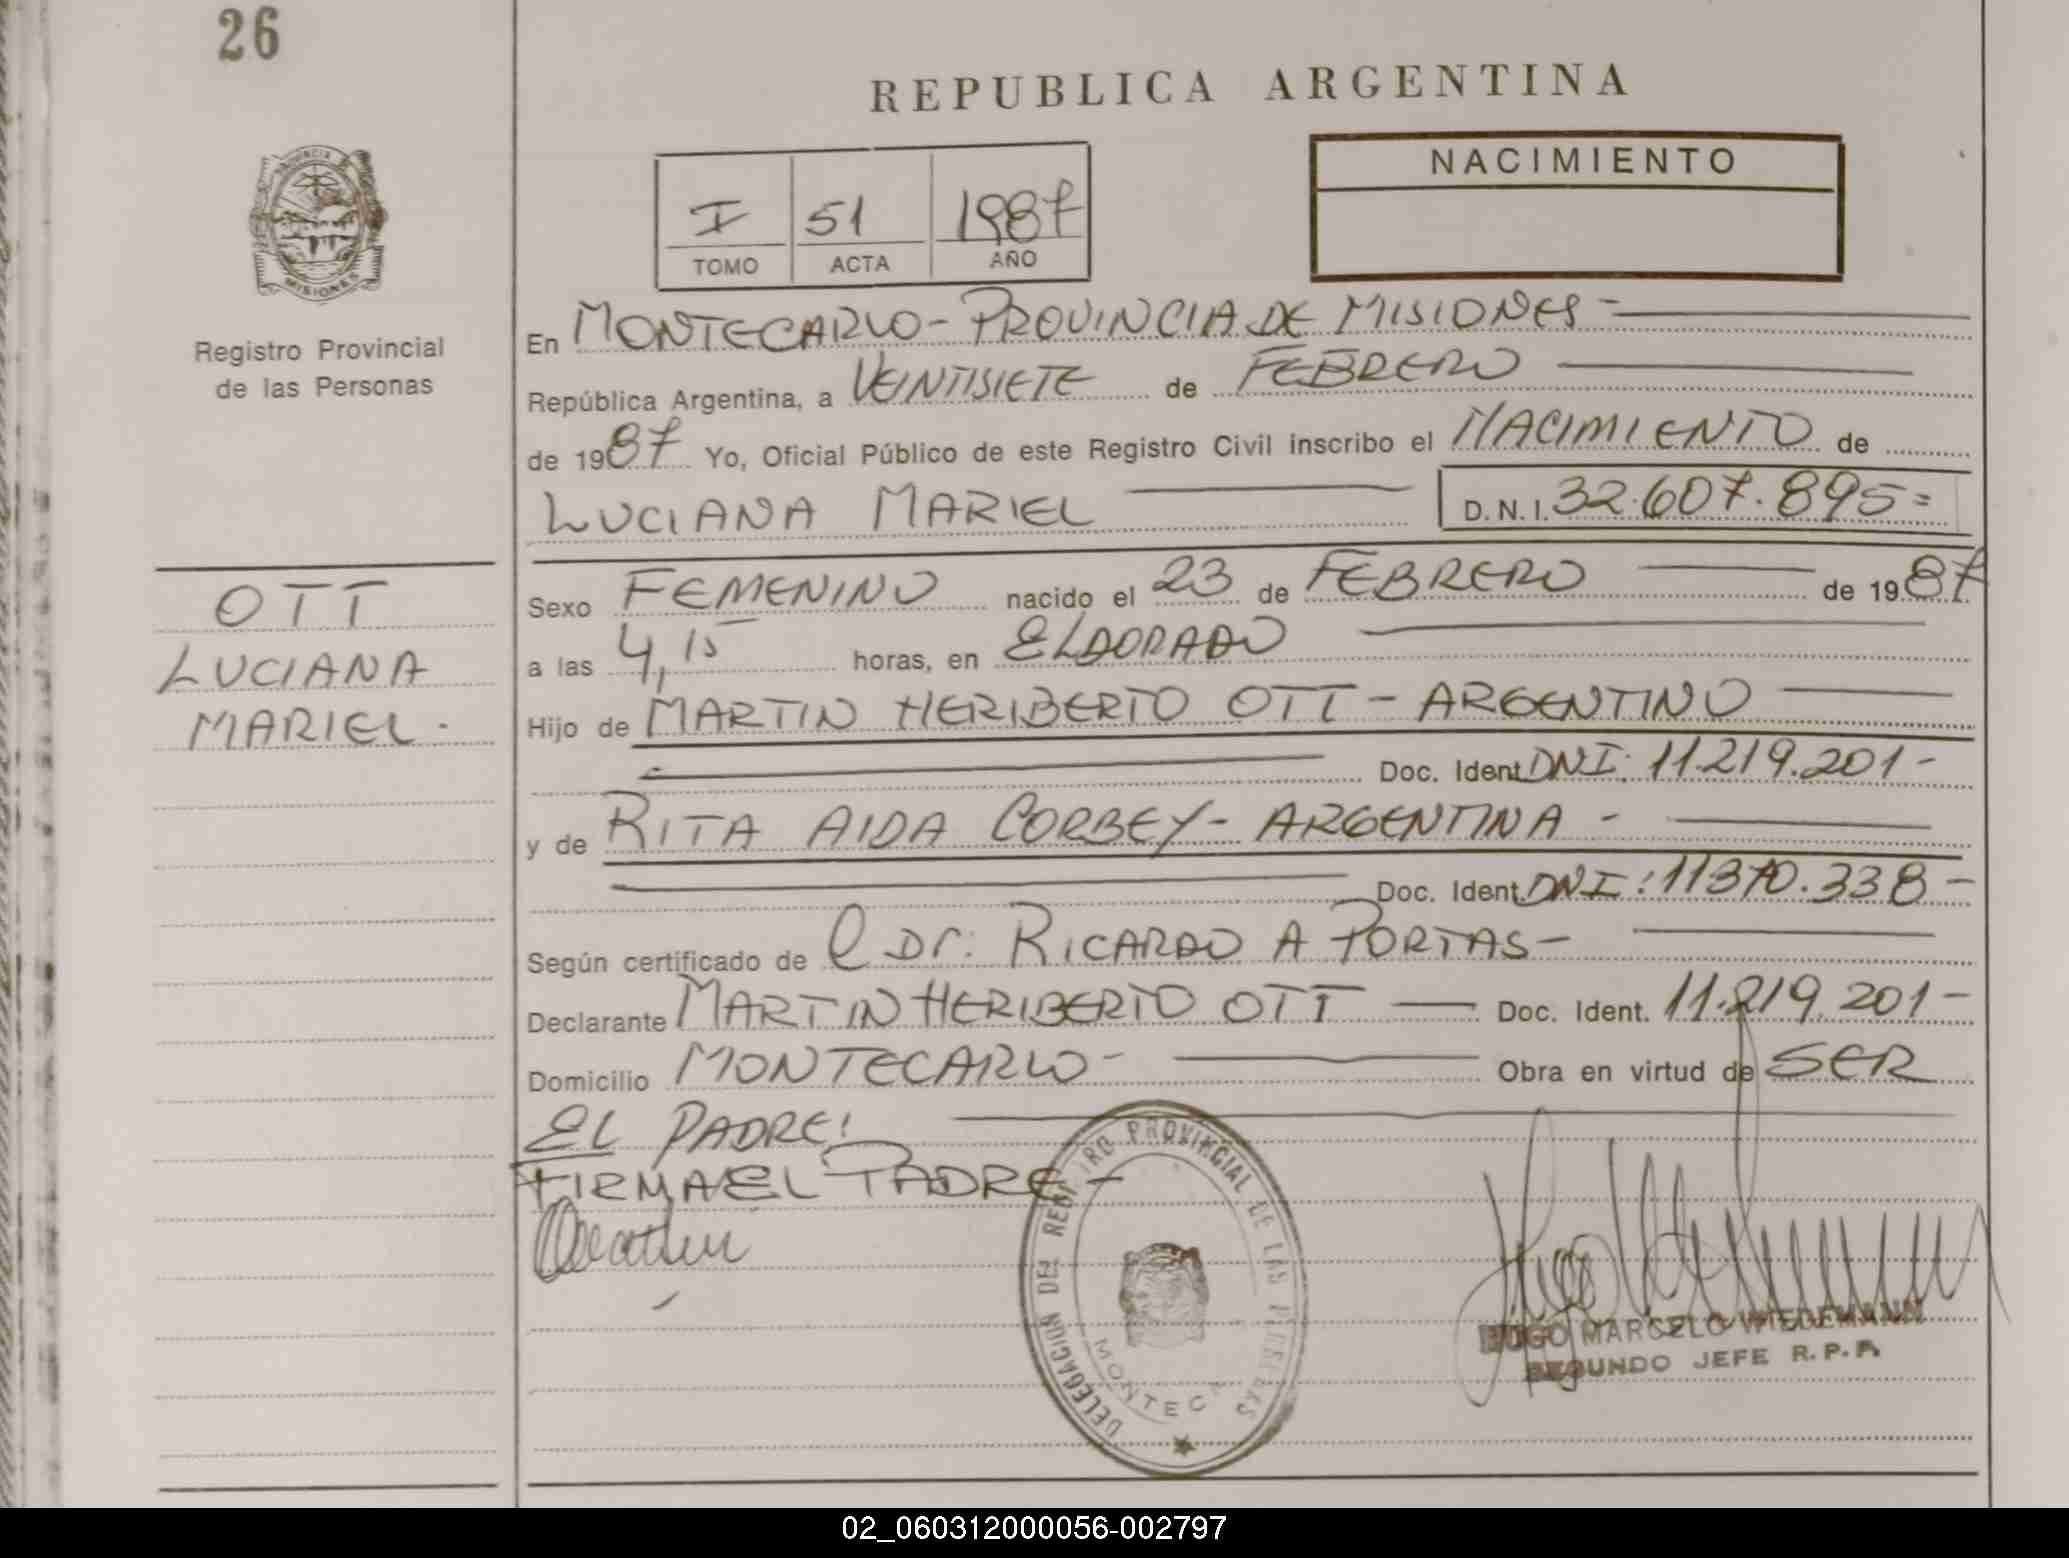 26
REPUBLICA ARGENTINA
PROVINCIA
MISIONES
Registro Provincial
de las Personas
I 51 1987
TOMO ACTA AÑO
NACIMIENTO
En MONTECARLO - PROVINCIA DE MISIONES -
República Argentina, a VEINTISIETE de FEBRERO
de 1987 Yo, Oficial Público de este Registro Civil inscribo el NACIMIENTO de
LUCIANA MARIEL D.N.I. 32.607.895=
OTT
LUCIANA
MARIEL.
Sexo FEMENINO nacido el 23 de FEBRERO de 1987
a las 4,15 horas, en ELDORADO
Hijo de MARTIN HERIBERTO OTT - ARGENTINO
Doc. Ident. DNI: 11.219.201-
y de RITA AIDA CORBEY - ARGENTINA -
Doc. Ident. DNI: 11370.338-
Según certificado de DR: RICARDO A PORTAS -
Declarante MARTIN HERIBERTO OTT Doc. Ident. 11.219.201-
Domicilio MONTECARLO - Obra en virtud de SER
EL PADRE!
FIRMA EL PADRE -
DELEGACION DEL REGISTRO PROVINCIAL DE LAS PERSONAS
MONTEC
HUGO MARCELO WIEDEMANN
SEGUNDO JEFE R.P.P.
02_060312000056-002797